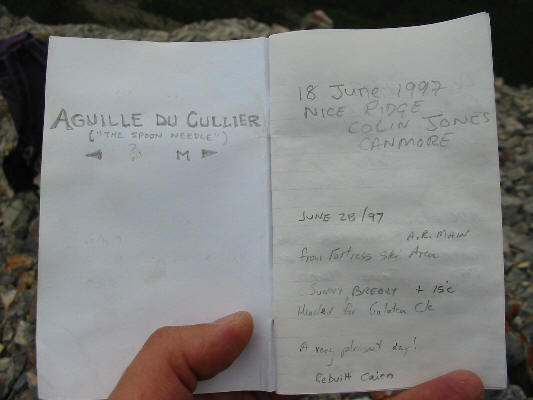 AGUILLE DU CULLIER
("THE SPOON NEEDLE")
? M
18 June 1997
NICE RIDGE
COLIN JONES
CANMORE
JUNE 28/97
A.R. MAIN
from Fortress Ski Area
SUNNY BREEZY + 15°C
Headed for Galatea Ck
A very pleasant day!
Rebuilt Cairn